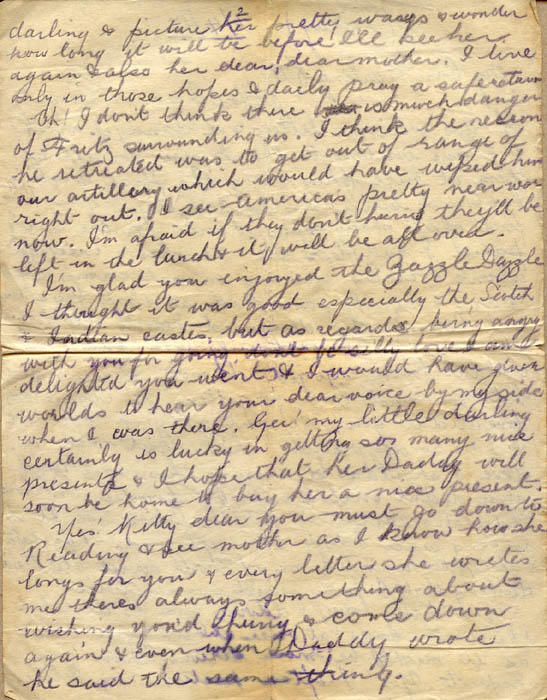 2
darling & picture her pretty ways & wonder
how long it will be before I'll see her
again & also her dear, dear mother. I live
only in those hopes & daily pray a safe return
Oh! I don't think there is much danger
of Fritz surrounding us. I think the reason
he retreated was to get out of range of
our artillery which would have wiped him
right out. I see America's pretty near war
now. I'm afraid if they don't hurry they'll be
left in the lurch & it will be all over.
I'm glad you enjoyed the Gazzle Dazzle
I thought it was good especially the Scotch
& Indian castes, but as regards being angry
with you for going don't be silly love I am
delighted you went & I would have given
worlds to hear your dear voice by my side
when I was there. Gee! my little darling
certainly is lucky in getting so many nice
presents & I hope that her Daddy will
soon be home to buy her a nice present.
Yes! Kitty dear you must go down to
Reading & see mother as I know how she
longs for you & every letter she wrotes
me theres always something about
wishing you'd hurry & come down
again & even when Daddy wrote
he said the same thing.